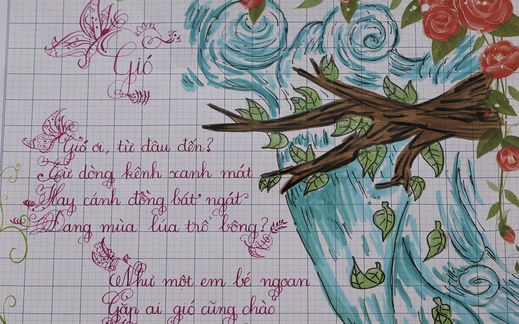 Gió
Gió ơi, từ đâu đến?
Từ dòng kênh xanh mát
Hay cánh đồng bát ngát
Đang mùa lúa trổ bông?
Như một em bé ngoan
Gặp ai gió cũng chào